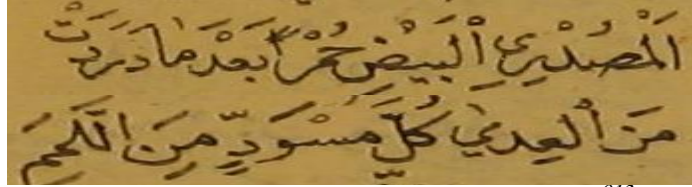 اَلْمُصْدِرِي اْلبَيْضِ حُمْرًا بَعْدَ مَا وَرَدَتْ
مِنَ اْلعِدَيٰ كُلَّ مُسْوَدٍّ مِنَ اللَّمَمِ